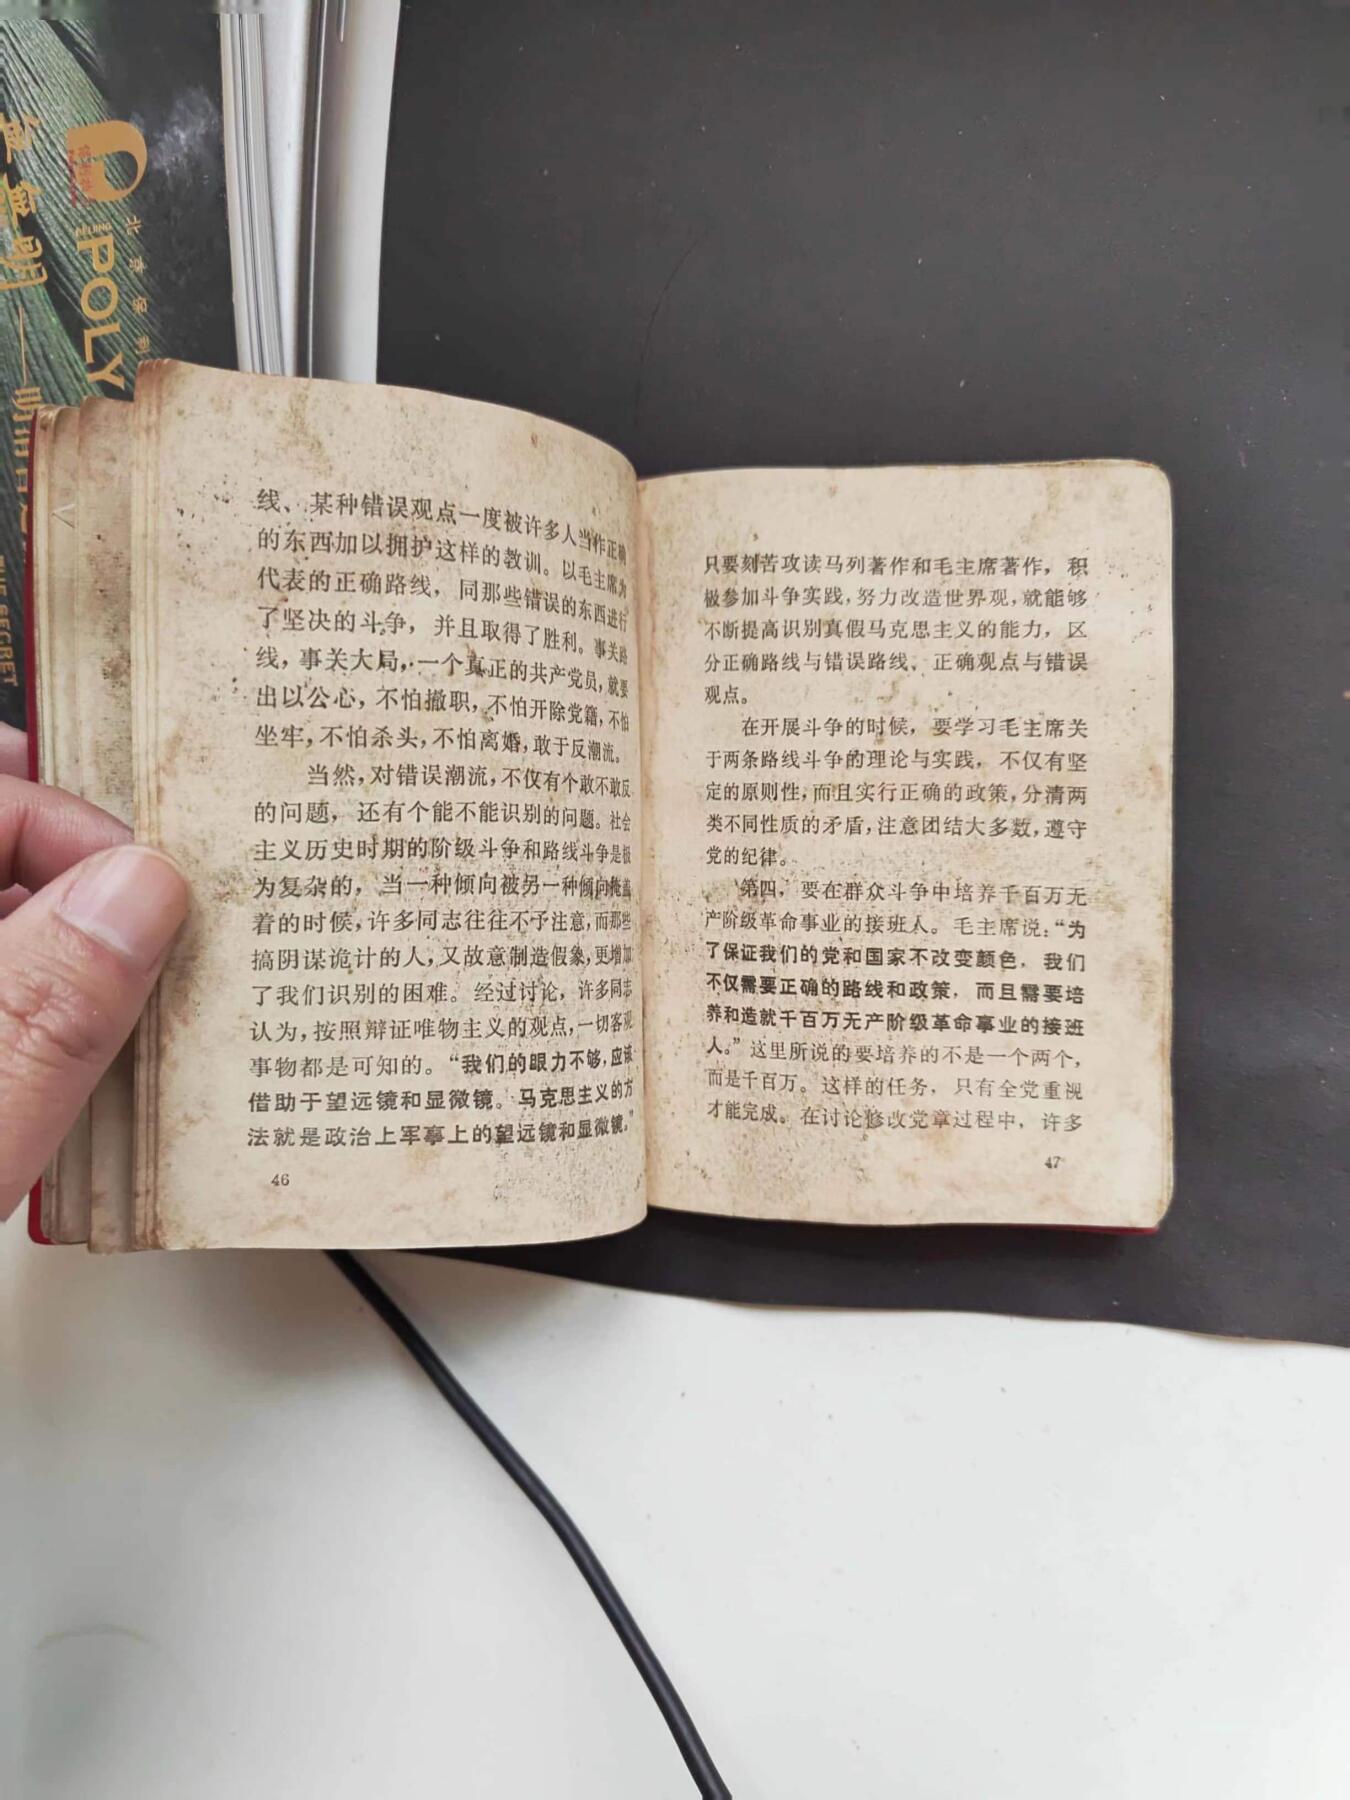 北京保利
BEIJING
POLY
THE SECRET
线、某种错误观点一度被许多人当作正确
的东西加以拥护这样的教训。以毛主席为
代表的正确路线，同那些错误的东西进行
了坚决的斗争，并且取得了胜利。事关路
线，事关大局，一个真正的共产党员，就要
出以公心，不怕撤职，不怕开除党籍，不怕
坐牢，不怕杀头，不怕离婚，敢于反潮流。
当然，对错误潮流，不仅有个敢不敢反
的问题，还有个能不能识别的问题。社会
主义历史时期的阶级斗争和路线斗争是极
为复杂的，当一种倾向被另一种倾向掩盖
着的时候，许多同志往往不予注意，而那些
搞阴谋诡计的人，又故意制造假象，更增加
了我们识别的困难。经过讨论，许多同志
认为，按照辩证唯物主义的观点，一切客观
事物都是可知的。“我们的眼力不够，应该
借助于望远镜和显微镜。马克思主义的方
法就是政治上军事上的望远镜和显微镜。”
46
只要刻苦攻读马列著作和毛主席著作，积
极参加斗争实践，努力改造世界观，就能够
不断提高识别真假马克思主义的能力，区
分正确路线与错误路线、正确观点与错误
观点。
在开展斗争的时候，要学习毛主席关
于两条路线斗争的理论与实践，不仅有坚
定的原则性，而且实行正确的政策，分清两
类不同性质的矛盾，注意团结大多数，遵守
党的纪律。
第四，要在群众斗争中培养千百万无
产阶级革命事业的接班人。毛主席说：“为
了保证我们的党和国家不改变颜色，我们
不仅需要正确的路线和政策，而且需要培
养和造就千百万无产阶级革命事业的接班
人。”这里所说的要培养的不是一个两个，
而是千百万。这样的任务，只有全党重视
才能完成。在讨论修改党章过程中，许多
47